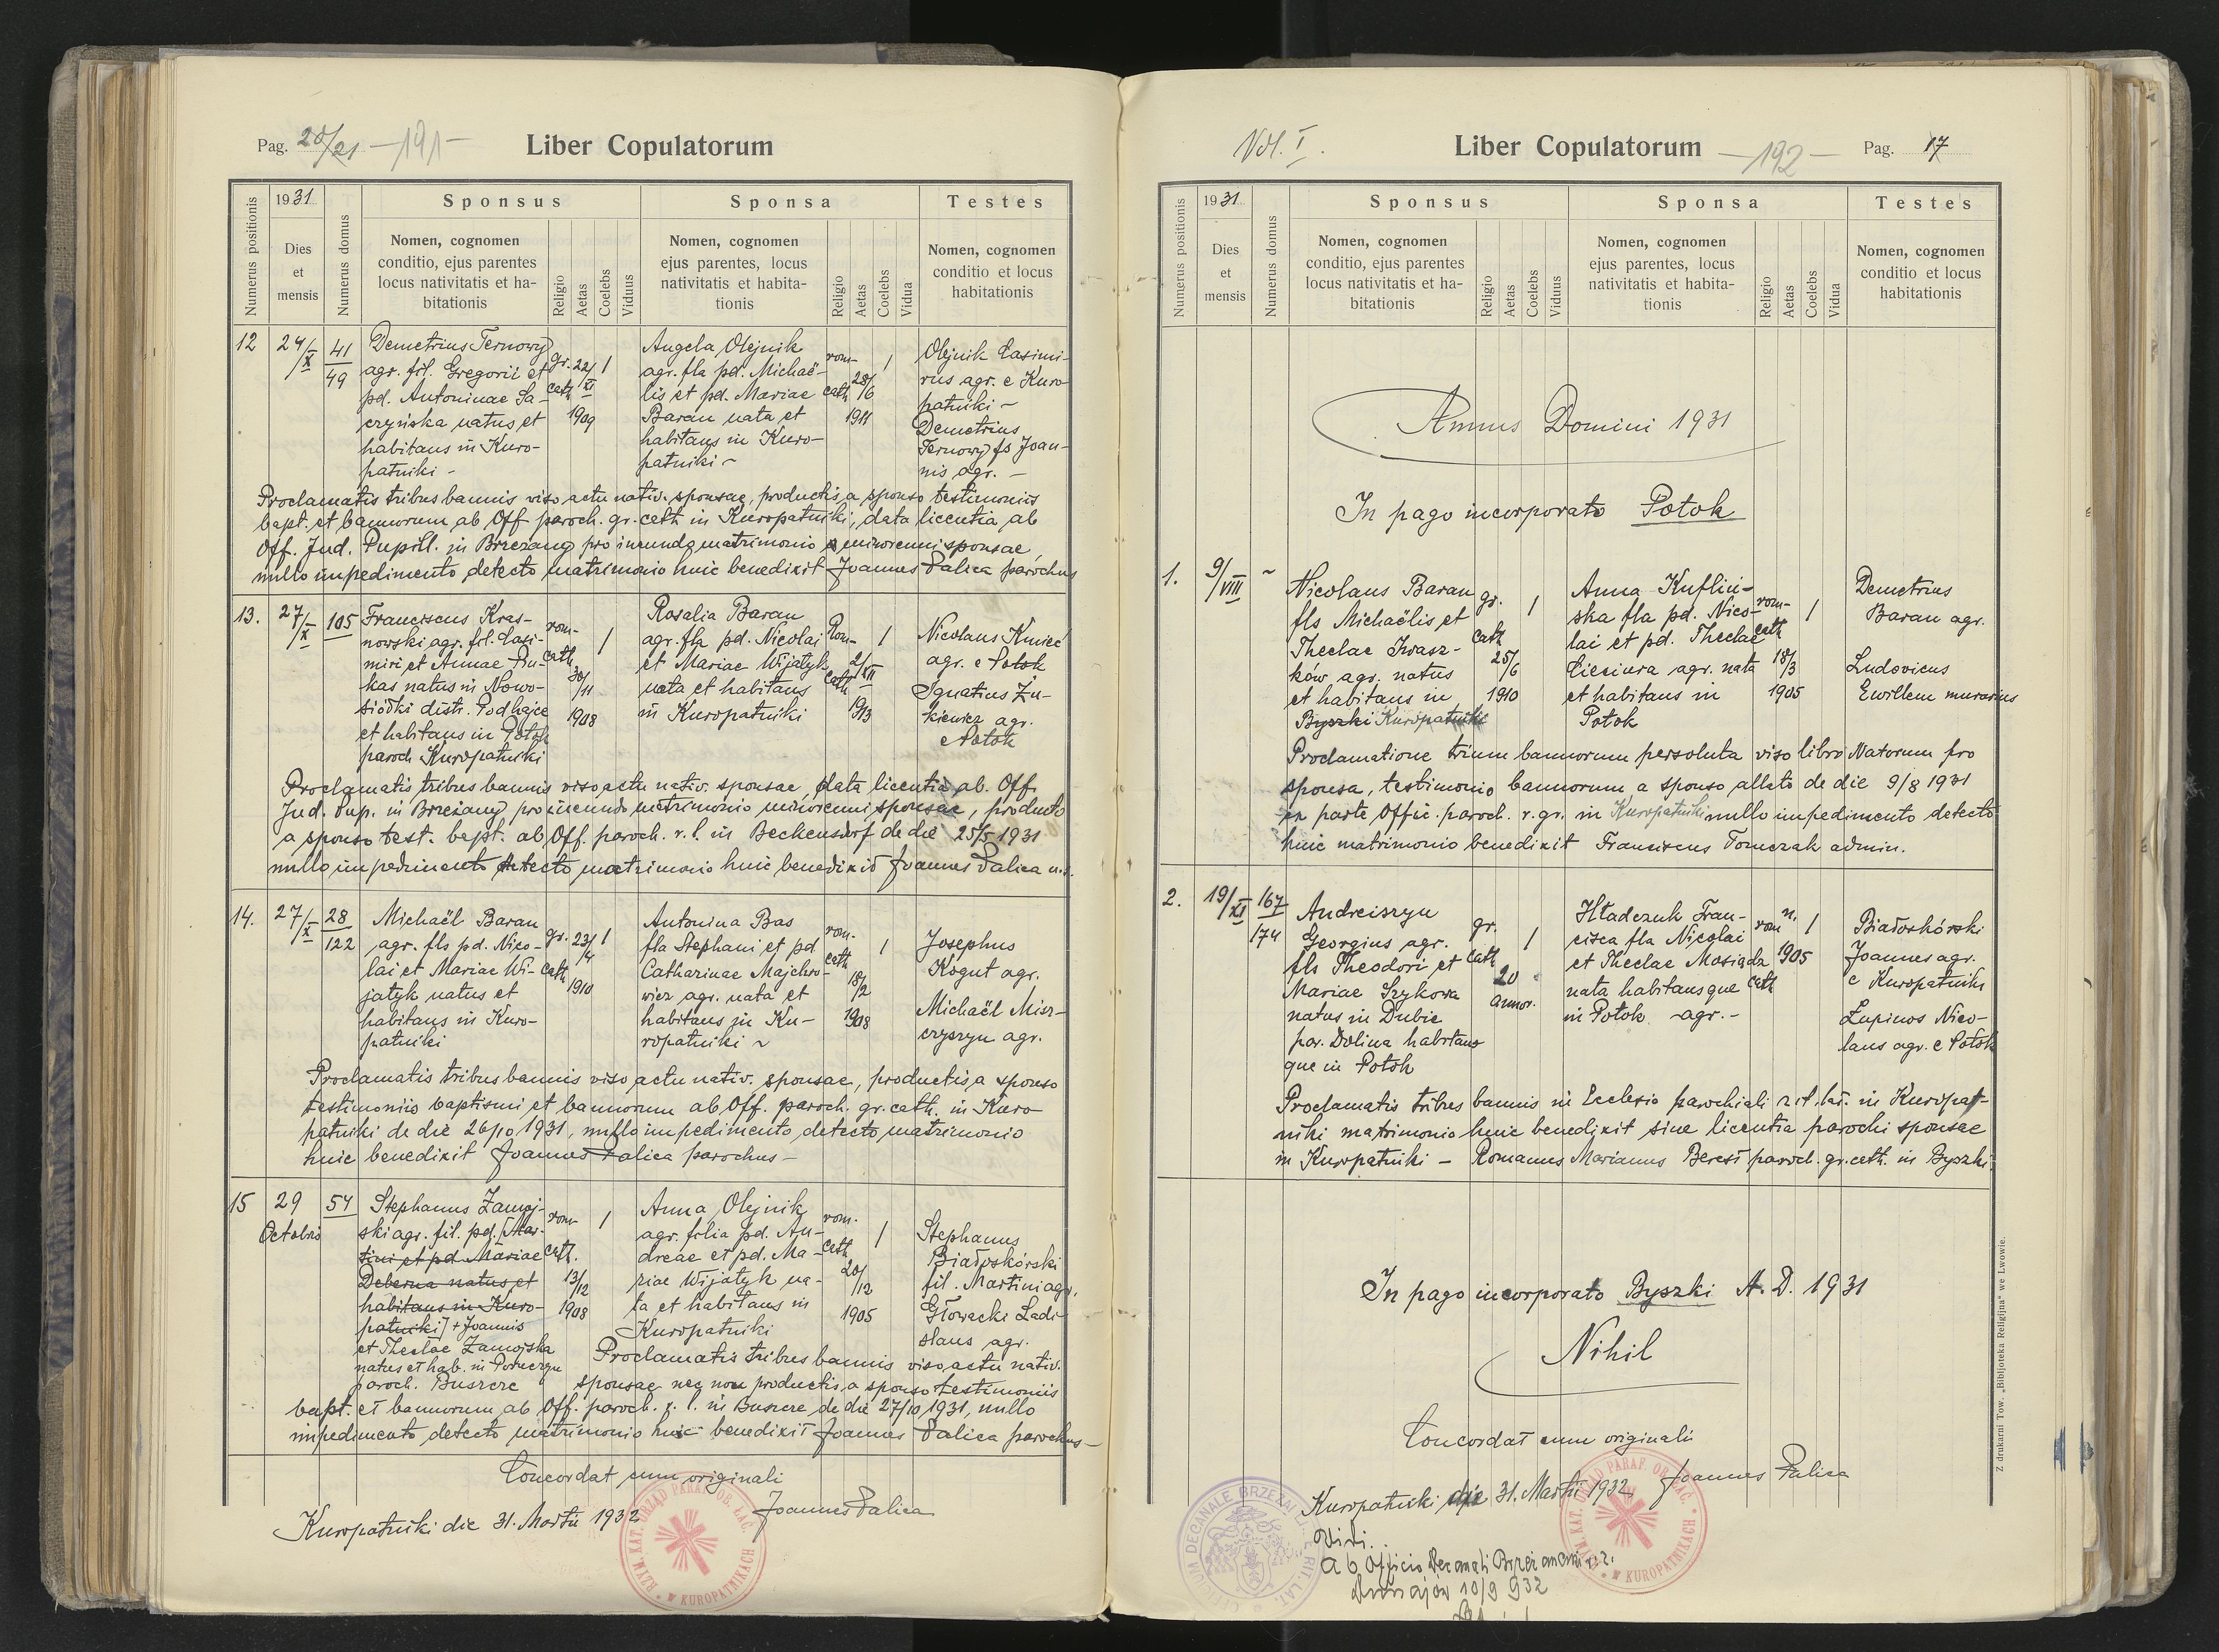 Pag. 20/21 -191-
Liber Copulatorum
Numerus positionis
1931
Dies
et
mensis
Numerus domus
Sponsus
Nomen, cognomen
conditio, ejus parentes
locus nativitatis et ha-
bitationis
Religio
Aetas
Coelebs
Viduus
Sponsa
Nomen, cognomen
ejus parentes, locus
nativitatis et habita-
tionis
Religio
Aetas
Coelebs
Vidua
Testes
Nomen, cognomen
conditio et locus
habitationis
12
24/X
41
49
Demetrius Ternowyj
agr. fil. Gregorii et
pd. Antoninae Sa-
czyńska natus et
habitans in Kuro-
patniki -
gr.
cath
22/XI
1909
1
Angela Olejnik
agr. fla pd. Michaë-
lis et pd. Mariae
Baran nata et
habitans in Kuro-
patniki ~
rom-
cath
28/6
1911
1
Olejnik Casimi-
rus agr. e Kuro-
patniki ~
Demetrius
Ternowyj fs Joan-
nis agr. -
Proclamatis tribus bannis viso actu nativ. sponsae, productis a sponso testimoniis
bapt. et bannorum ab Off paroch. gr. cath in Kuropatniki, data licentia ab
Off. Jud. Pupill. in Brzeżany pro ineundo matrimonio minorenni sponsae,
nullo impedimento detecto matrimonio huic benedixit Joannes Palica parochus
13.
27/X
105
Franciscus Kras-
nowski agr. fil. Casi-
miri et Annae Pu-
kas natus in Nowo-
siółki distr. Podhajce
et habitans in Potok
paroch Kuropatniki
rom-
cath
30/11
1908
1
Rosalia Baran
agr. fla pd. Nicolai
et Mariae Wijatyk
nata et habitans
in Kuropatniki
Rom-
cath
2/XII
1913
1
Nicolaus Kmieć
agr. e Potok
Ignatius Żu-
kiewicz agr.
e Potok
Proclamatis tribus bannis viso actu nativ. sponsae, data licentia ab. Off.
Jud. Pup. in Brzeżany pro ineundo matrimonio minorenni sponsae, producto
a sponso test. bapt. ab Off. paroch. r. l. in Beckersdorf de die 25/5 1931
nullo impedimento detecto matrimonio huic benedixit Joannes Palica
14.
27/X
28
122
Michaël Baran
agr. fls pd. Nico-
lai et Mariae Wi-
jatyk natus et
habitans in Kuro-
patniki
gr.
cath
23/4
1910
1
Antonina Bas
fla Stephani et pd
Catharinae Majchro-
wicz agr. nata et
habitans in Ku-
ropatniki ~
rom.
cath
18/2
1908
1
Josephus
Kogut agr.
Michaël Misz-
czyszyn agr.
Proclamatis tribus bannis viso actu nativ. sponsae, productis a sponso
testimoniis baptismi et bannorum ab Off. paroch. gr. cath. in Kuro-
patniki de die 26/10 1931, nullo impedimento detecto matrimonio
huic benedixit Joannes Palica parochus -
15
29
Octobris
54
Stephanus Zamoj-
ski agr. fil. pd. [Mar-
tini et pd Mariae
Deberna natus et
habitans in Kuro-
patniki] + Joannis
et Theclae Zamojska
natus et hab. in
paroch. Buszcze
rom-
cath.
13/12
1908
1
Anna Olejnik
agr. filia pd. An-
dreae et pd. Ma-
riae Wijatyk na-
ta et habitans in
Kuropatniki
rom.
cath
20/12
1905
1
Stephanus
Białoskórski
fil. Martini agr.
Głowacki Ladi-
slaus agr.
Proclamatis tribus bannis viso actu nativ.
sponsae nec non productis a sponso testimoniis
bapt. et bannorum ab Off. paroch. r. l. in Buszcze de die 27/10 1931, nullo
impedimento detecto matrimonio huic benedixit Joannes Palica parochus -
Concordat cum originali
Kuropatniki die 31. Martii 1932
Joannes Palica
RZYM. KAT. URZĄD PARAF. OB. ŁAC.
W KUROPATNIKACH
Vol. I.
Liber Copulatorum
-192-
Pag. 17
Numerus positionis
1931
Dies
et
mensis
Numerus domus
Sponsus
Nomen, cognomen
conditio, ejus parentes
locus nativitatis et ha-
bitationis
Religio
Aetas
Coelebs
Viduus
Sponsa
Nomen, cognomen
ejus parentes, locus
nativitatis et habita-
tionis
Religio
Aetas
Coelebs
Vidua
Testes
Nomen, cognomen
conditio et locus
habitationis
Annus Domini 1931
In pago incorporato Potok
1.
9/VIII
~
Nicolaus Baran
fls Michaëlis et
Theclae Iwasz-
ków agr. natus
et habitans in
Byszki Kuropatniki
gr.
cath
25/6
1910
1
Anna Kuflin-
ska fla pd. Nico-
lai et pd. Theclae
Cieciura agr. nata
et habitans in
Potok
rom-
cath
18/3
1905
1
Demetrius
Baran agr.
Ludovicus
Ewillem murarius
Proclamatione trium bannorum persoluta viso libro Natorum pro
sponsa, testimonio bannorum a sponso allato de die 9/8 1931
ex parte Offic. paroch. r. gr. in Kuropatniki nullo impedimento detecto
huic matrimonio benedixit Franciscus Tomczak admin.
2.
19/XI
167
174
Andreiszyn
Georgius agr.
fls Theodori et
Mariae Szykowa
natus in Dubie
par. Dolina habitans
que in Potok
gr.
cath
20
annor.
1
Hładczuk Fran-
cisca fla Nicolai
et Theclae Mosiądz
nata habitansque
in Potok agr. -
rom
cath
n.
1905
1
Białoskórski
Joannes agr.
e Kuropatniki
Łupinos Nico-
laus agr. e Potok
Proclamatis tribus bannis in Ecclesia parochiali rit. lat. in Kuropat-
niki matrimonio huic benedixit sine licentia parochi sponsae
in Kuropatniki - Romanus Marianus Berest paroch. gr. cath. in Byszki.
In pago incorporato Byszki A. D. 1931
Nihil
Concordat cum originali
Kuropatniki die 31. Martii 1932
Joannes Palica
RZYM. KAT. URZĄD PARAF. OB. ŁAC.
W KUROPATNIKACH
OFFICIUM DECANALE BRZEŻAN. RIT. LAT.
Vidi.
Ab Officio Decanali Brzeżanensi r. l.
Dunajów 10/9 932
Z drukarni Tow. „Bibljoteka Religijna" we Lwowie.